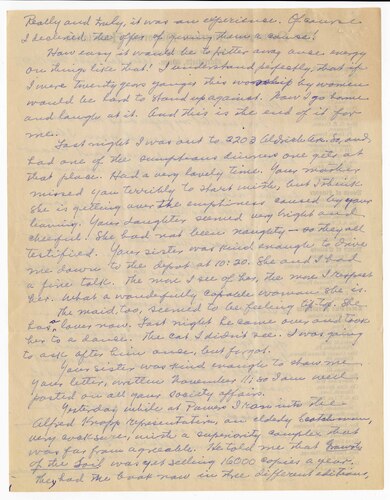 Really and truly, it was an experience. Of course
I declined the offer of giving them a course!
How easy it would be to fritter away ones energy
on things like that! I understand perfectly, that if
I were twenty years younger this worship by women
would be hard to stand up against. Now I go home
and laugh at it. And this is the end of it for
me.
Last night I was out to 2203 Aldrich Ave. So, and
had one of the sumptuous dinners one gets at
that place. Had a very lovely time. Your mother
missed you terribly to start with, but I think
she is getting over the emptiness caused by your
leaving. Your daughter seemed very bright and
cheerful. She had not been naughty - so they all
testified. Your sister was kind enough to drive
me down to the depot at 10:20. She and I had
a fine talk. The more I see of her, the more I respect
her. What a wonderfully capable woman she is.
The maid, too, seemed to be feeling tiptop. She
has a lover now. Last night he came over and took
her to a dance. The cat I didn't see. I was going
to ask after him once, but forgot.
Your sister was kind enough to show me
your letter, written November 11; so I am well
posted on all your society affairs.
Yesterday while at Powers I ran into the
Alfred Knopf representative, an elderly Scotchman,
very cocksure, with a superiority complex that
was far from agreeable. He told me that Growth
of the Soil was yet selling 16000 copies a year.
They had the book now in three different editions,